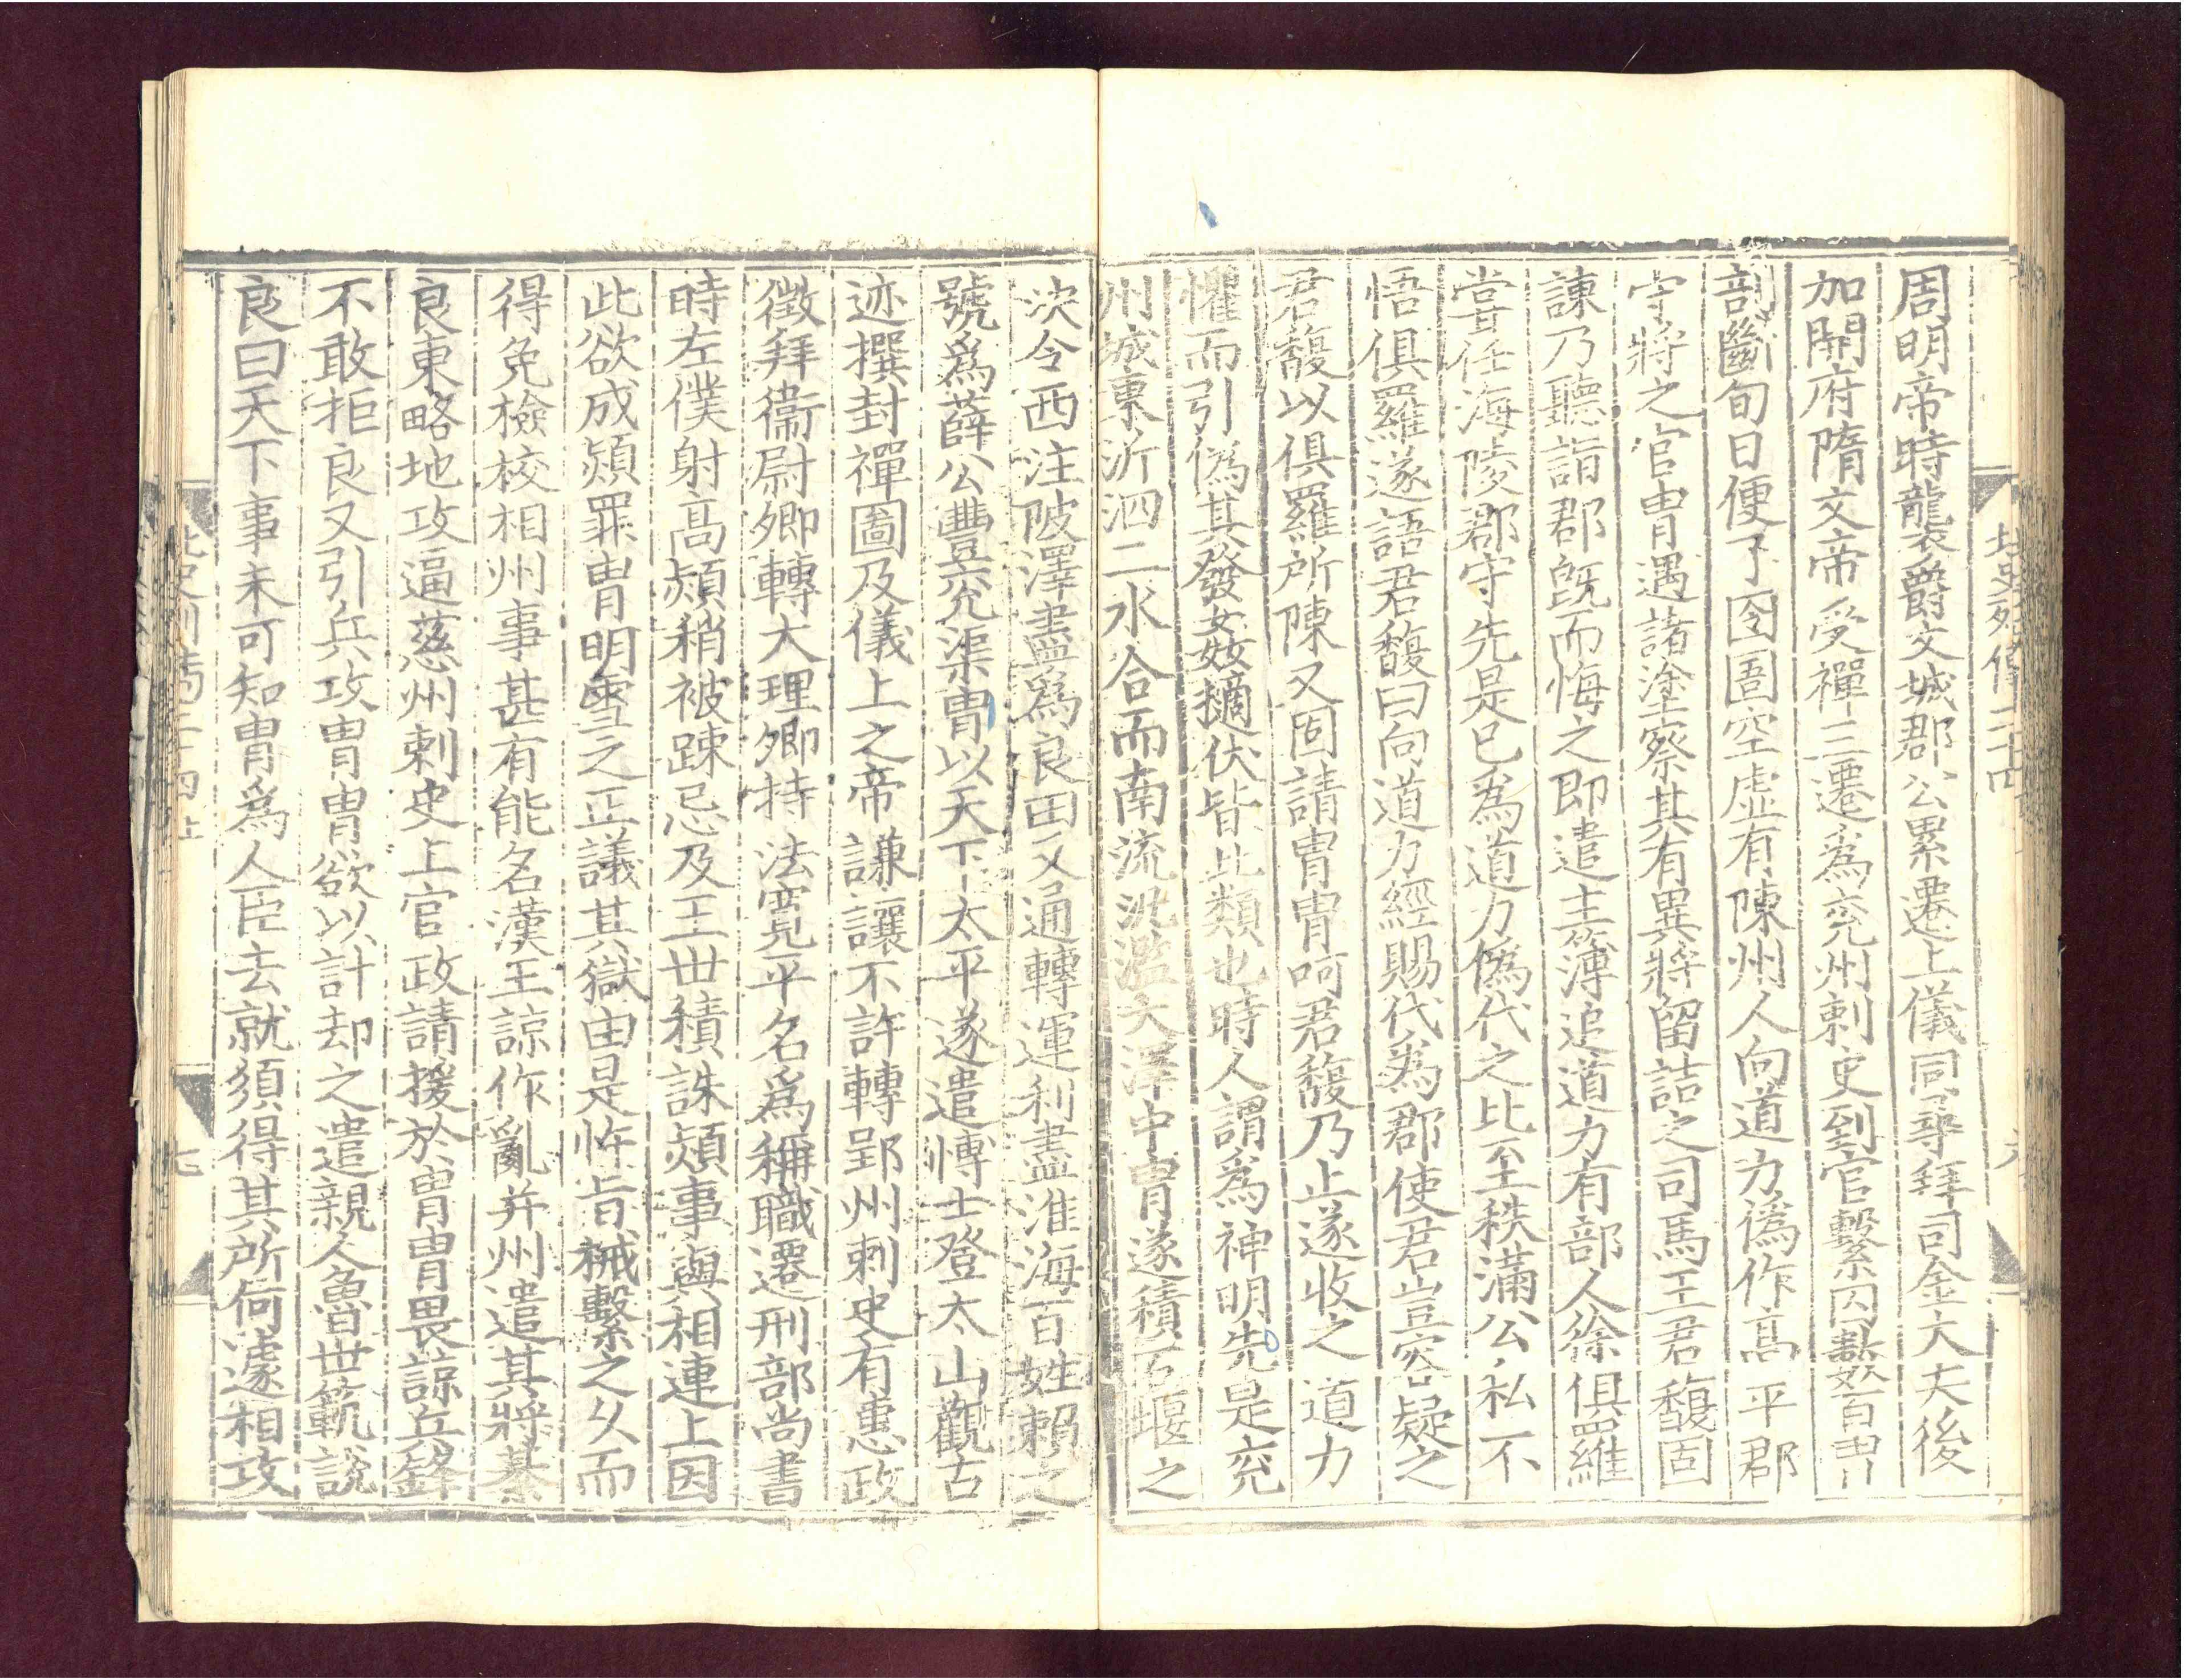 北史列傳二十四
六
周明帝時襲爵文城郡公累遷上儀同尋拜司金大夫後
加開府隋文帝受禪三遷爲兖州剌史到官繫囚數百胄
剖斷旬日便了囹圄空虛有陳州人向道力僞作高平郡
守將之官胄遇諸塗察其有異將留詰之司馬王君馥固
諫乃聽詣郡旣而悔之即遣主簿追道力有部人徐俱羅
嘗任海陵郡守先是已爲道力僞代之比至秩滿公私不
悟俱羅遂語君馥曰向道力經賜代爲郡使君豈容疑之
君馥以俱羅所陳又固請胄胄呵君馥乃止遂收之道力
懼而引僞其發姦擿伏皆此類也時人謂爲神明先是兖
州城東沂泗二水合而南流汎濫大澤中胄遂積石堰之
決令西注陂澤盡爲良田又通轉運利盡淮海百姓賴之
號爲薛公豐兖渠胄以天下太平遂遣博士登太山觀古
迹撰封禪圖及儀上之帝謙讓不許轉郢州剌史有惠政
徵拜衞尉卿轉大理卿持法寬平名爲稱職遷刑部尚書
時左僕射高熲稍被踈忌及王世積誅熲事與相連上因
此欲成熲罪胄明雪之正議其獄由是忤旨械繫之久而
得免檢校相州事甚有能名漢王諒作亂并州遣其將綦
良東略地攻逼慈州剌史上官政請援於胄胄畏諒兵鋒
不敢拒良又引兵攻胄胄欲以計却之遣親人魯世範說
良曰天下事未可知胄爲人臣去就須得其所何遽相攻
北史列傳二十四
七